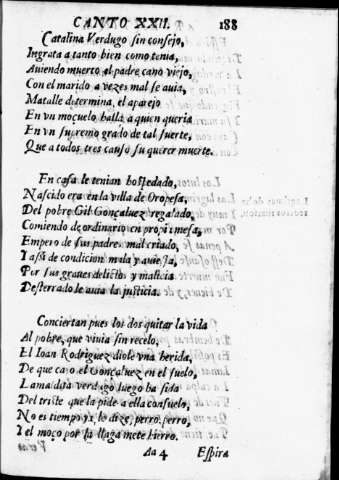 CANTO XXII. 188
Catalina Verdugo sin consejo,
Ingrata a tanto bien como tenia,
Auiendo muerto el padre cano viejo,
Con el marido a vezes mal se auia,
Matalle determina, el aparejo
En vn moçuelo halla a quien queria
En vn supremo grado de tal suerte,
Que a todos tres causò su querer muerte.
En casa le tenian hospedado,
Nascido era en la villa de Oropesa,
Del pobre Gil Gonçaluez regalado,
Comiendo de ordinario en propia mesa,
Empero de sus padres mal criado,
Y assi de condicion mala y auiesa,
Por sus graues delictos y malicia
Desterrado le auia la justicia.
Conciertan pues los dos quitar la vida
Al pobre, que viuia sin recelo,
El Ioan Rodriguez diole vna herida,
De que cayo el Gonçaluez en el suelo,
La maldita verdugo luego ha sida
Del triste que la pide a ella consuelo,
No es tiempo ya, le dize, perro, perro,
Y el moço por la llaga mete hierro.
Aa 4 Espira